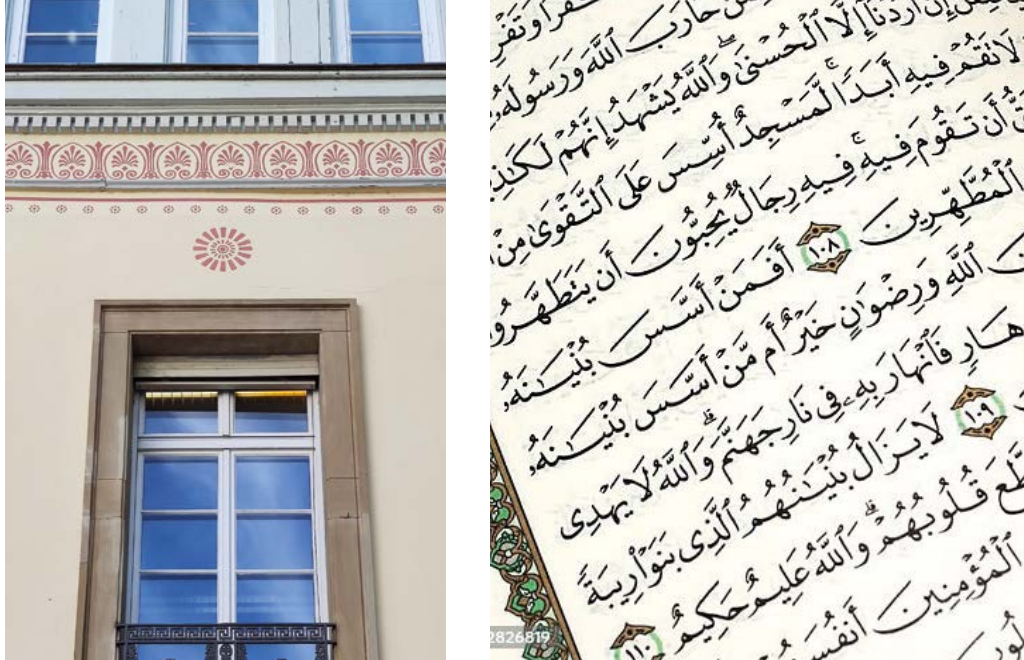 حَارَبَ ٱللَّهَ وَرَسُولَهُۥ
إِنْ أَرَدْنَآ إِلَّا ٱلْحُسْنَىٰ ۖ وَٱللَّهُ يَشْهَدُ إِنَّهُمْ
لَا تَقُمْ فِيهِ أَبَدًا ۚ لَّمَسْجِدٌ أُسِّسَ عَلَى ٱلتَّقْوَىٰ مِنْ
أَن تَقُومَ فِيهِ ۚ فِيهِ رِجَالٌ يُحِبُّونَ أَن يَتَطَهَّرُو
ٱلْمُطَّهِّرِينَ ١٠٨ أَفَمَنْ أَسَّسَ بُنْيَـٰنَهُۥ
ٱللَّهِ وَرِضْوَٰنٍ خَيْرٌ أَم مَّنْ أَسَّسَ بُنْيَـٰنَهُۥ
هَارٍ فَٱنْهَارَ بِهِۦ فِى نَارِ جَهَنَّمَ ۗ وَٱللَّهُ لَا يَهْدِى
١٠٩ لَا يَزَالُ بُنْيَـٰنُهُمُ ٱلَّذِى بَنَوْا۟ رِيبَةً
قُلُوبُهُمْ ۗ وَٱللَّهُ عَلِيمٌ حَكِيمٌ ١١٠
ٱلْمُؤْمِنِينَ
2826819